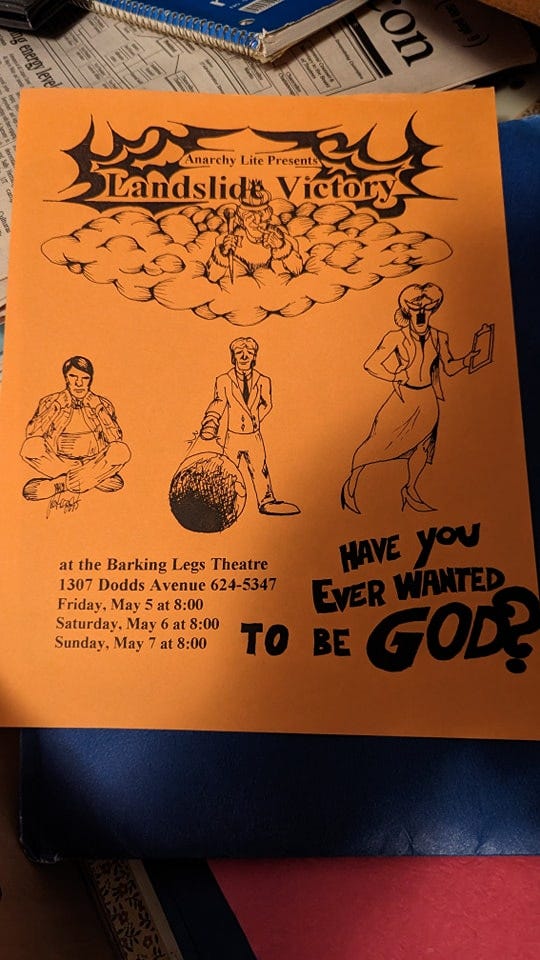 con
(see page 9)
ing energy level
Anarchy Lite Presents
Landslide Victory
at the Barking Legs Theatre
1307 Dodds Avenue 624-5347
Friday, May 5 at 8:00
Saturday, May 6 at 8:00
Sunday, May 7 at 8:00
HAVE YOU
EVER WANTED
TO BE GOD?